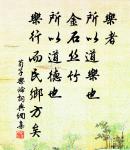 樂者
所以道樂也
金石丝竹
所以道德也
樂行而民鄉方矣
荀子樂論詞典網集